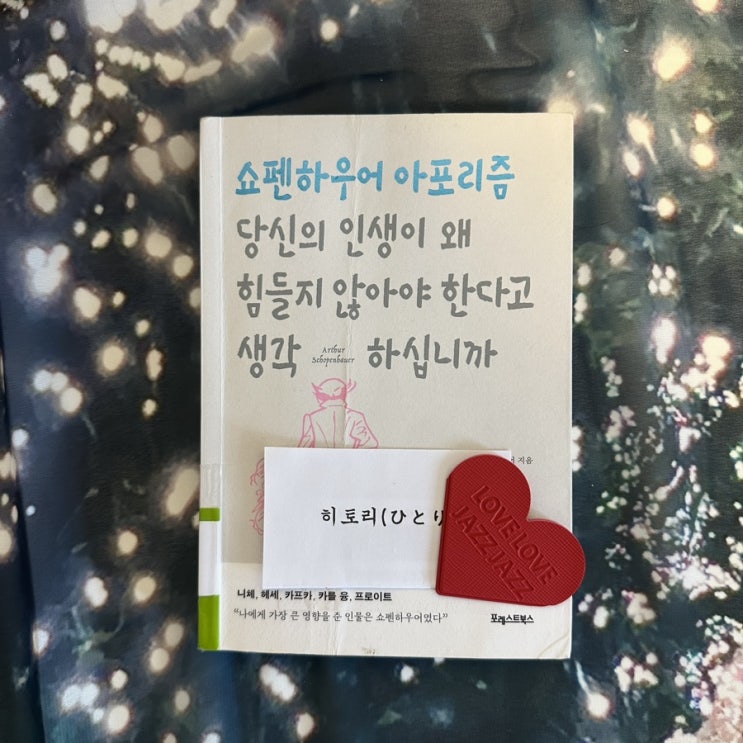 쇼펜하우어 아포리즘
당신의 인생이 왜
힘들지 않아야 한다고
생각
Arthur
Schopenhauer
하십니까
지음
히토리(ひとり
LOVE LOVE
JAZZ JAZZ
니체, 헤세, 카프카, 카를 융, 프로이트
“나에게 가장 큰 영향을 준 인물은 쇼펜하우어였다”
포레스트북스